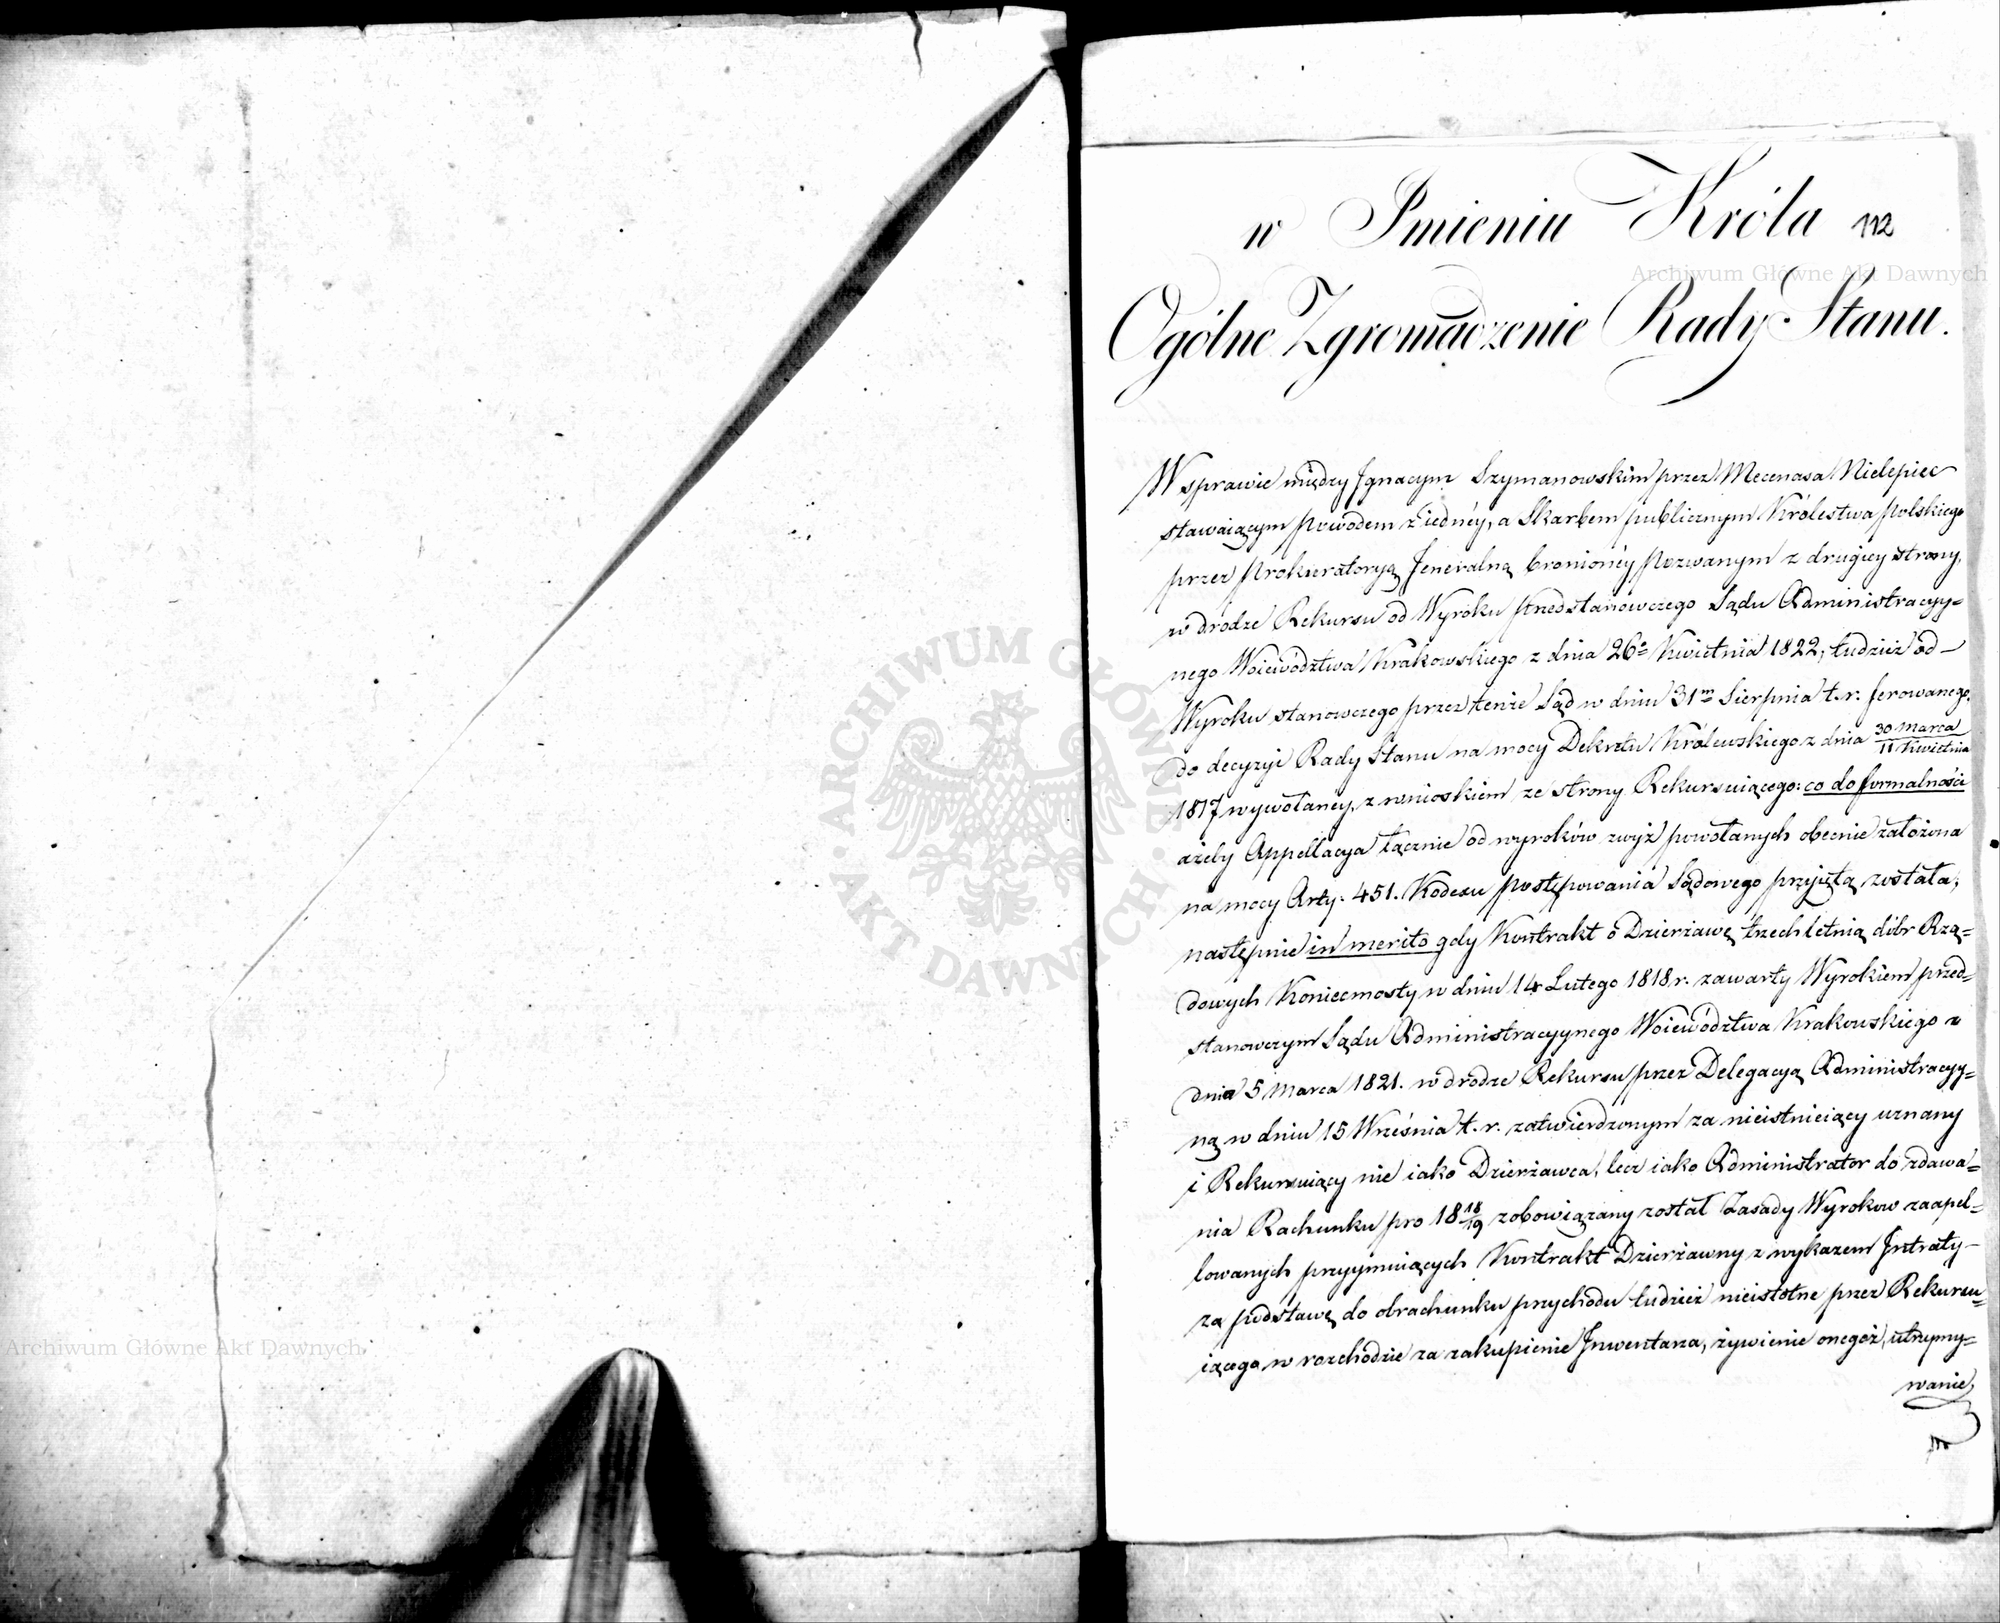 w Imieniu Króla 112
Ogólne Zgromadzenie Rady Stanu.
W sprawie między Ignacym Szymanowskim przez Mecenasa Nielepiec
stawaiącym powodem z iednéy, a Skarbem publicznym Królestwa Polskiego
przez Prokuratoryą Jeneralną bronionéy Pozwanym z drugiey strony,
w drodze Rekursu od Wyroku przedstanowczego Sądu Administracyy=
nego Woiewództwa Krakowskiego z dnia 26º Kwietnia 1822, tudzież od
Wyroku stanowczego przez tenże Sąd w dniu 31m Sierpnia t.r. ferowanego,
do decyzyi Rady Stanu na mocy Dekretu Królewskiego z dnia 30 Marca / 11 Kwietnia
1817 wywołaney, z wnioskiem ze strony Rekursuiącego: co do formalności
ażeby Appellacya łącznie od wyroków zwyż powołanych obecnie założona
na mocy Arty. 451. Kodexu postępowania Sądowego przyjętą została,
następnie in merito gdy Kontrakt o Dzierżawę trzechletnią dóbr Rzą=
dowych Koniecmosty w dniu 14 Lutego 1818 r. zawarty Wyrokiem przed=
stanowczym Sądu Administracyynego Woiewództwa Krakowskiego z
dnia 5 Marca 1821. w drodze Rekursu przez Delegacyą Administracyy=
ną w dniu 15 Września t. r. zatwierdzonym za nieistnieiący uznany
i Rekursuiący nie iako Dzierżawca, lecz iako Administrator do zdawa=
nia Rachunku pro 18 18/19 zobowiązany został Zasady Wyrokow zaapel=
lowanych przyymuiących Kontrakt Dzierżawny z wykazem Intraty
za podstawę do obrachunku przychodu tudzież nieistotne przez Rekursu=
iącego w rozchodzie za zakupienie Inwentarza, żywienie onegoż, utrzymy=
wanie
Archiwum Główne Akt Dawnych
Archiwum Główne Akt Dawnych
ARCHIWUM GŁÓWNE AKT DAWNYCH